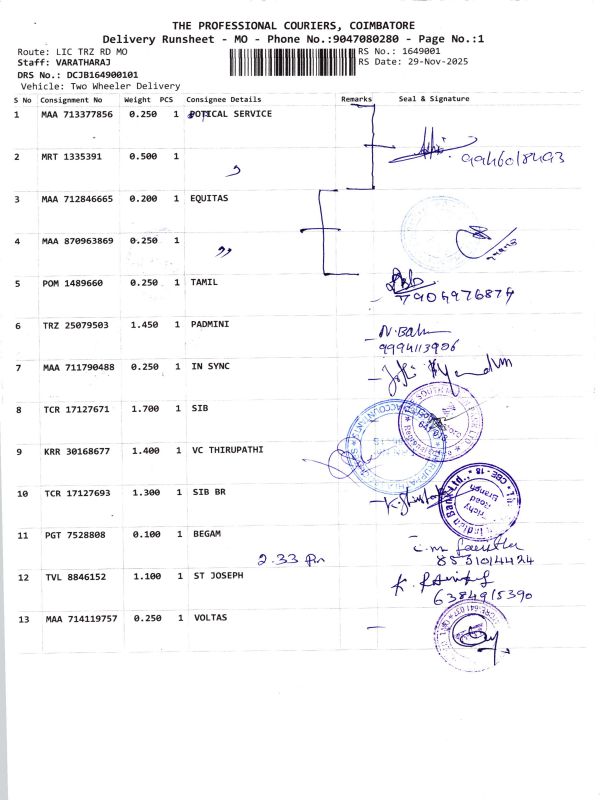 THE PROFESSIONAL COURIERS, COIMBATORE
Delivery Runsheet - MO - Phone No.:9047080280 - Page No.:1
Route: LIC TRZ RD MO RS No.: 1649001
Staff: VARATHARAJ RS Date: 29-Nov-2025
DRS No.: DCJB164900101
Vehicle: Two Wheeler Delivery
S No Consignment No Weight PCS Consignee Details Remarks Seal & Signature
1 MAA 713377856 0.250 1 OPTICAL SERVICE
2 MRT 1335391 0.500 1 " 9946018493
3 MAA 712846665 0.200 1 EQUITAS
4 MAA 870963869 0.250 1 "
5 POM 1489660 0.250 1 TAMIL
7904976874
6 TRZ 25079503 1.450 1 PADMINI N. Balu
9994113906
7 MAA 711790488 0.250 1 IN SYNC
8 TCR 17127671 1.700 1 SIB
9 KRR 30168677 1.400 1 VC THIRUPATHI
10 TCR 17127693 1.300 1 SIB BR
11 PGT 7528808 0.100 1 BEGAM
2.33 Pm 8531014424
12 TVL 8846152 1.100 1 ST JOSEPH
6384915390
13 MAA 714119757 0.250 1 VOLTAS